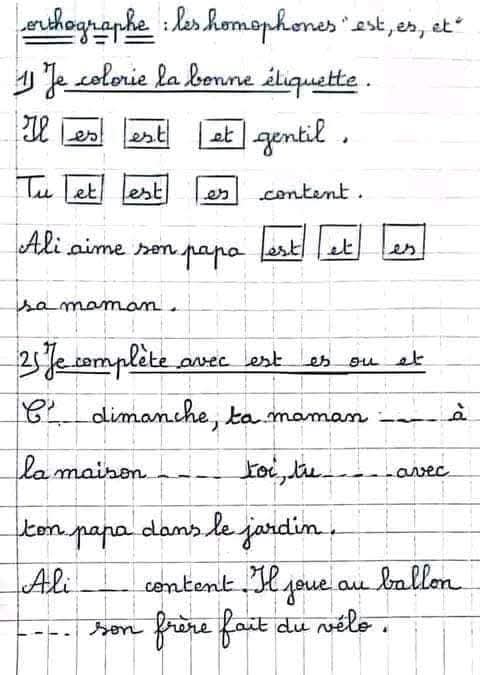 orthographe : les homophones "est, es, et"
1) Je colorie la bonne étiquette.
Il es est et gentil.
Tu et est es content.
Ali aime son papa est et es
sa maman.
2) Je complète avec est es ou et
C'___ dimanche, ta maman ____ à
la maison ____ toi, tu _____ avec
ton papa dans le jardin.
Ali ____ content. Il joue au ballon
____ son frère fait du vélo.